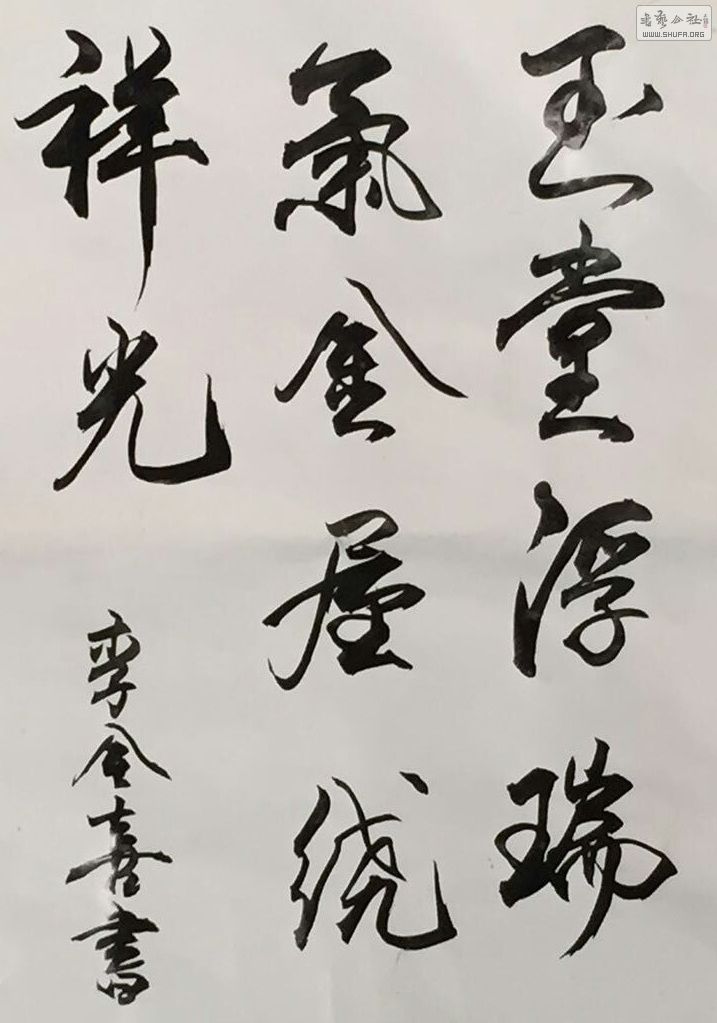 玉堂浮瑞
氣金屋绕
祥光
李金喜書
书艺公社
WWW.SHUFA.ORG